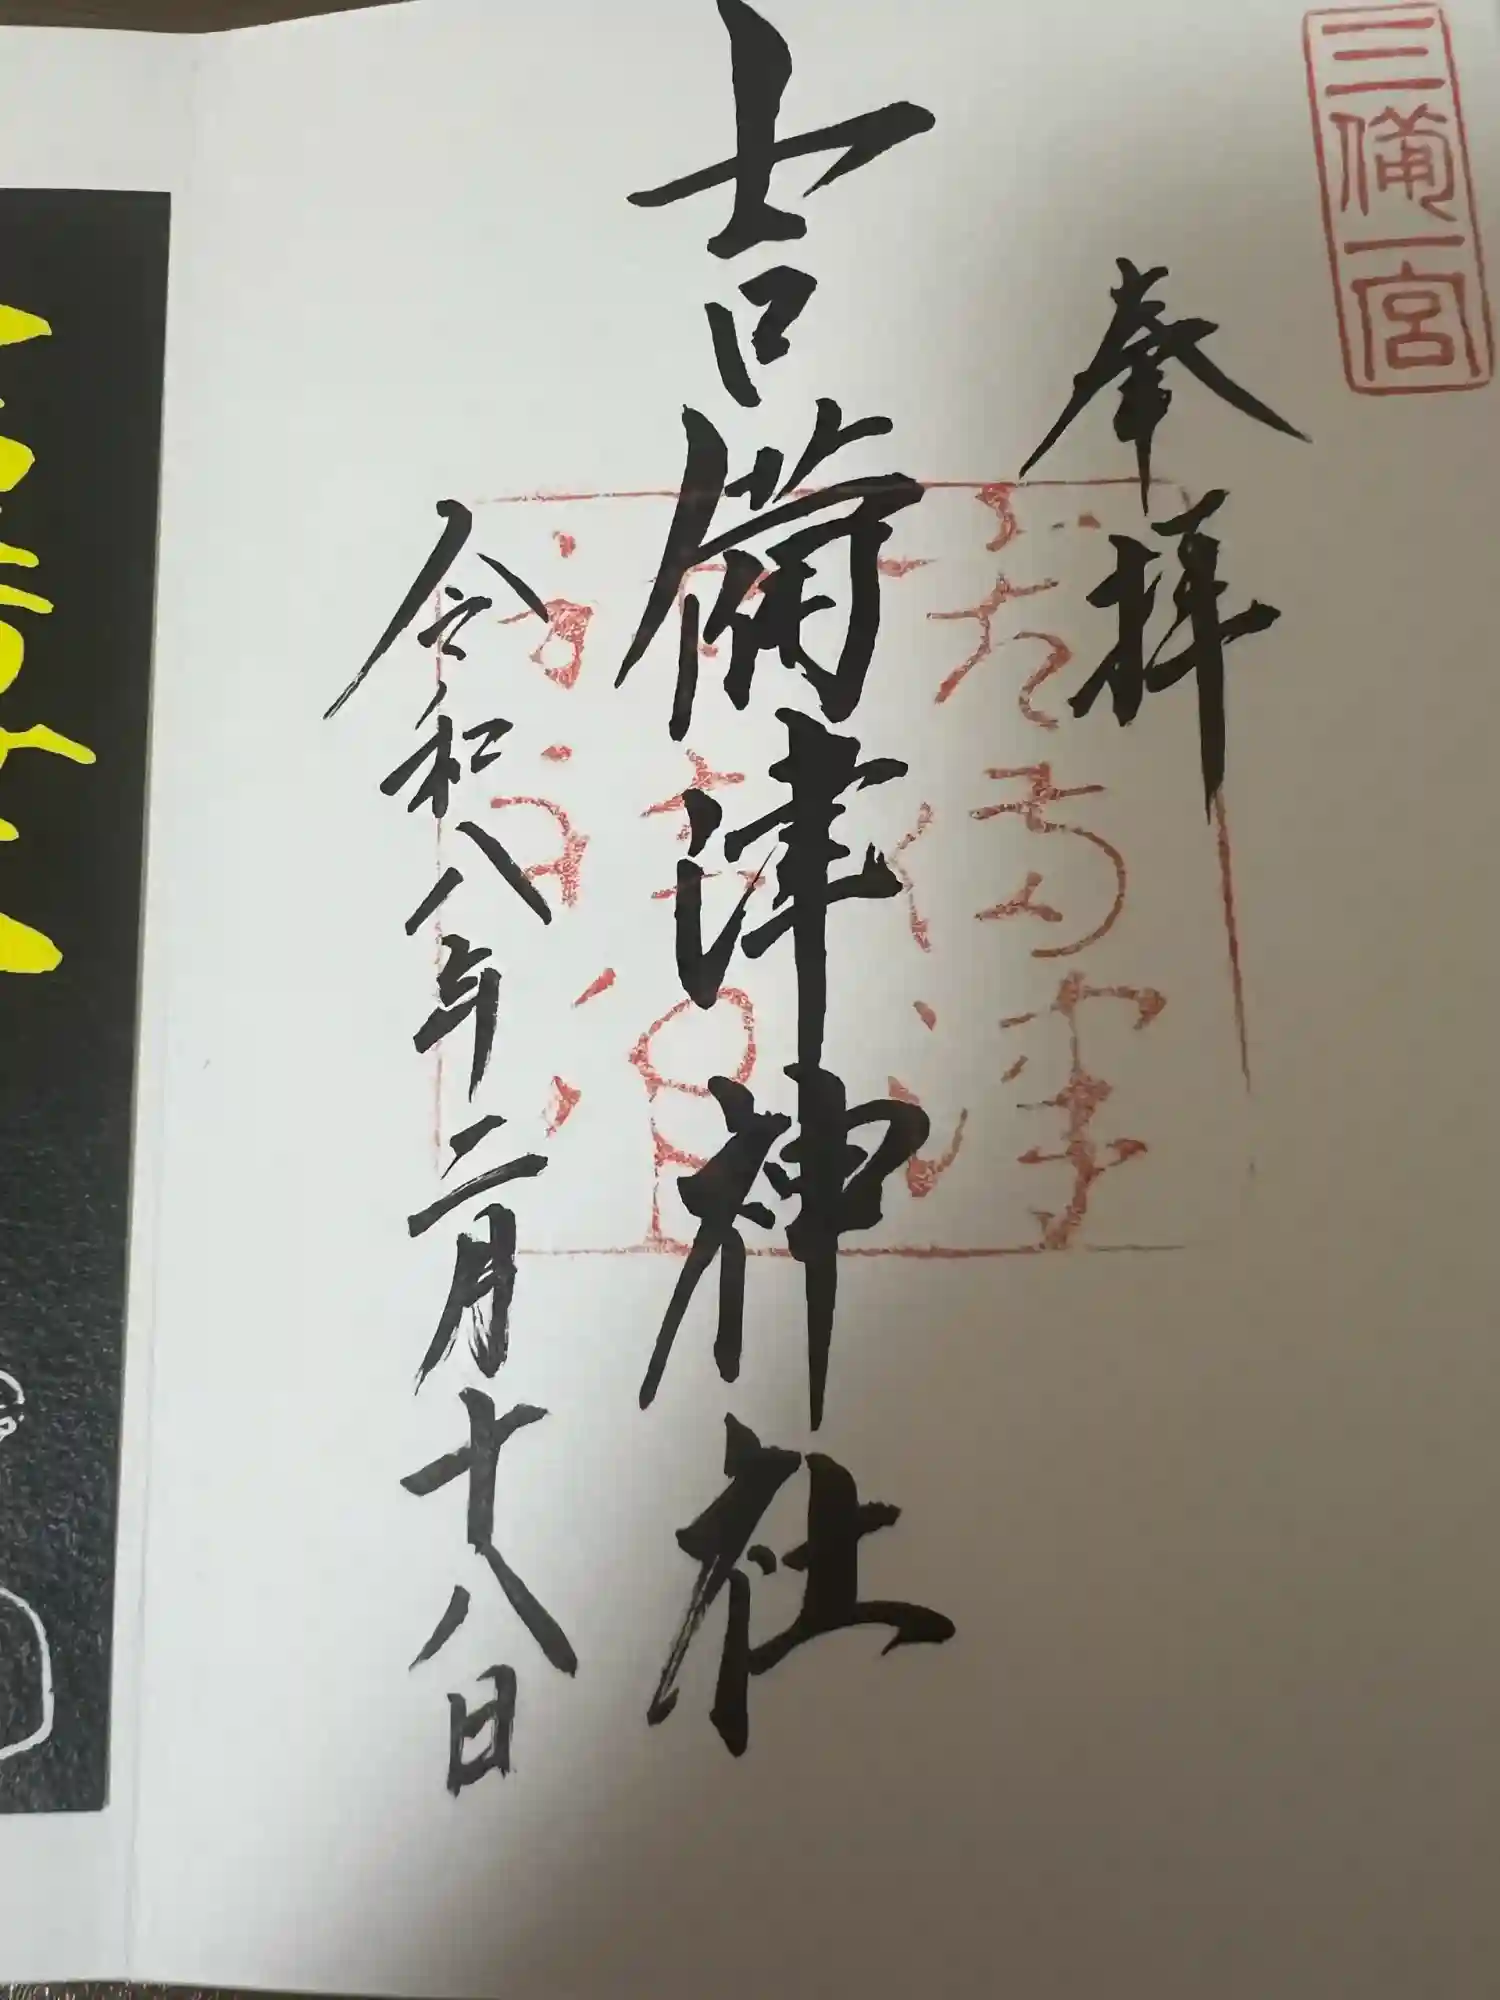 三備一宮
奉拝
吉備津神社
令和八年二月十八日